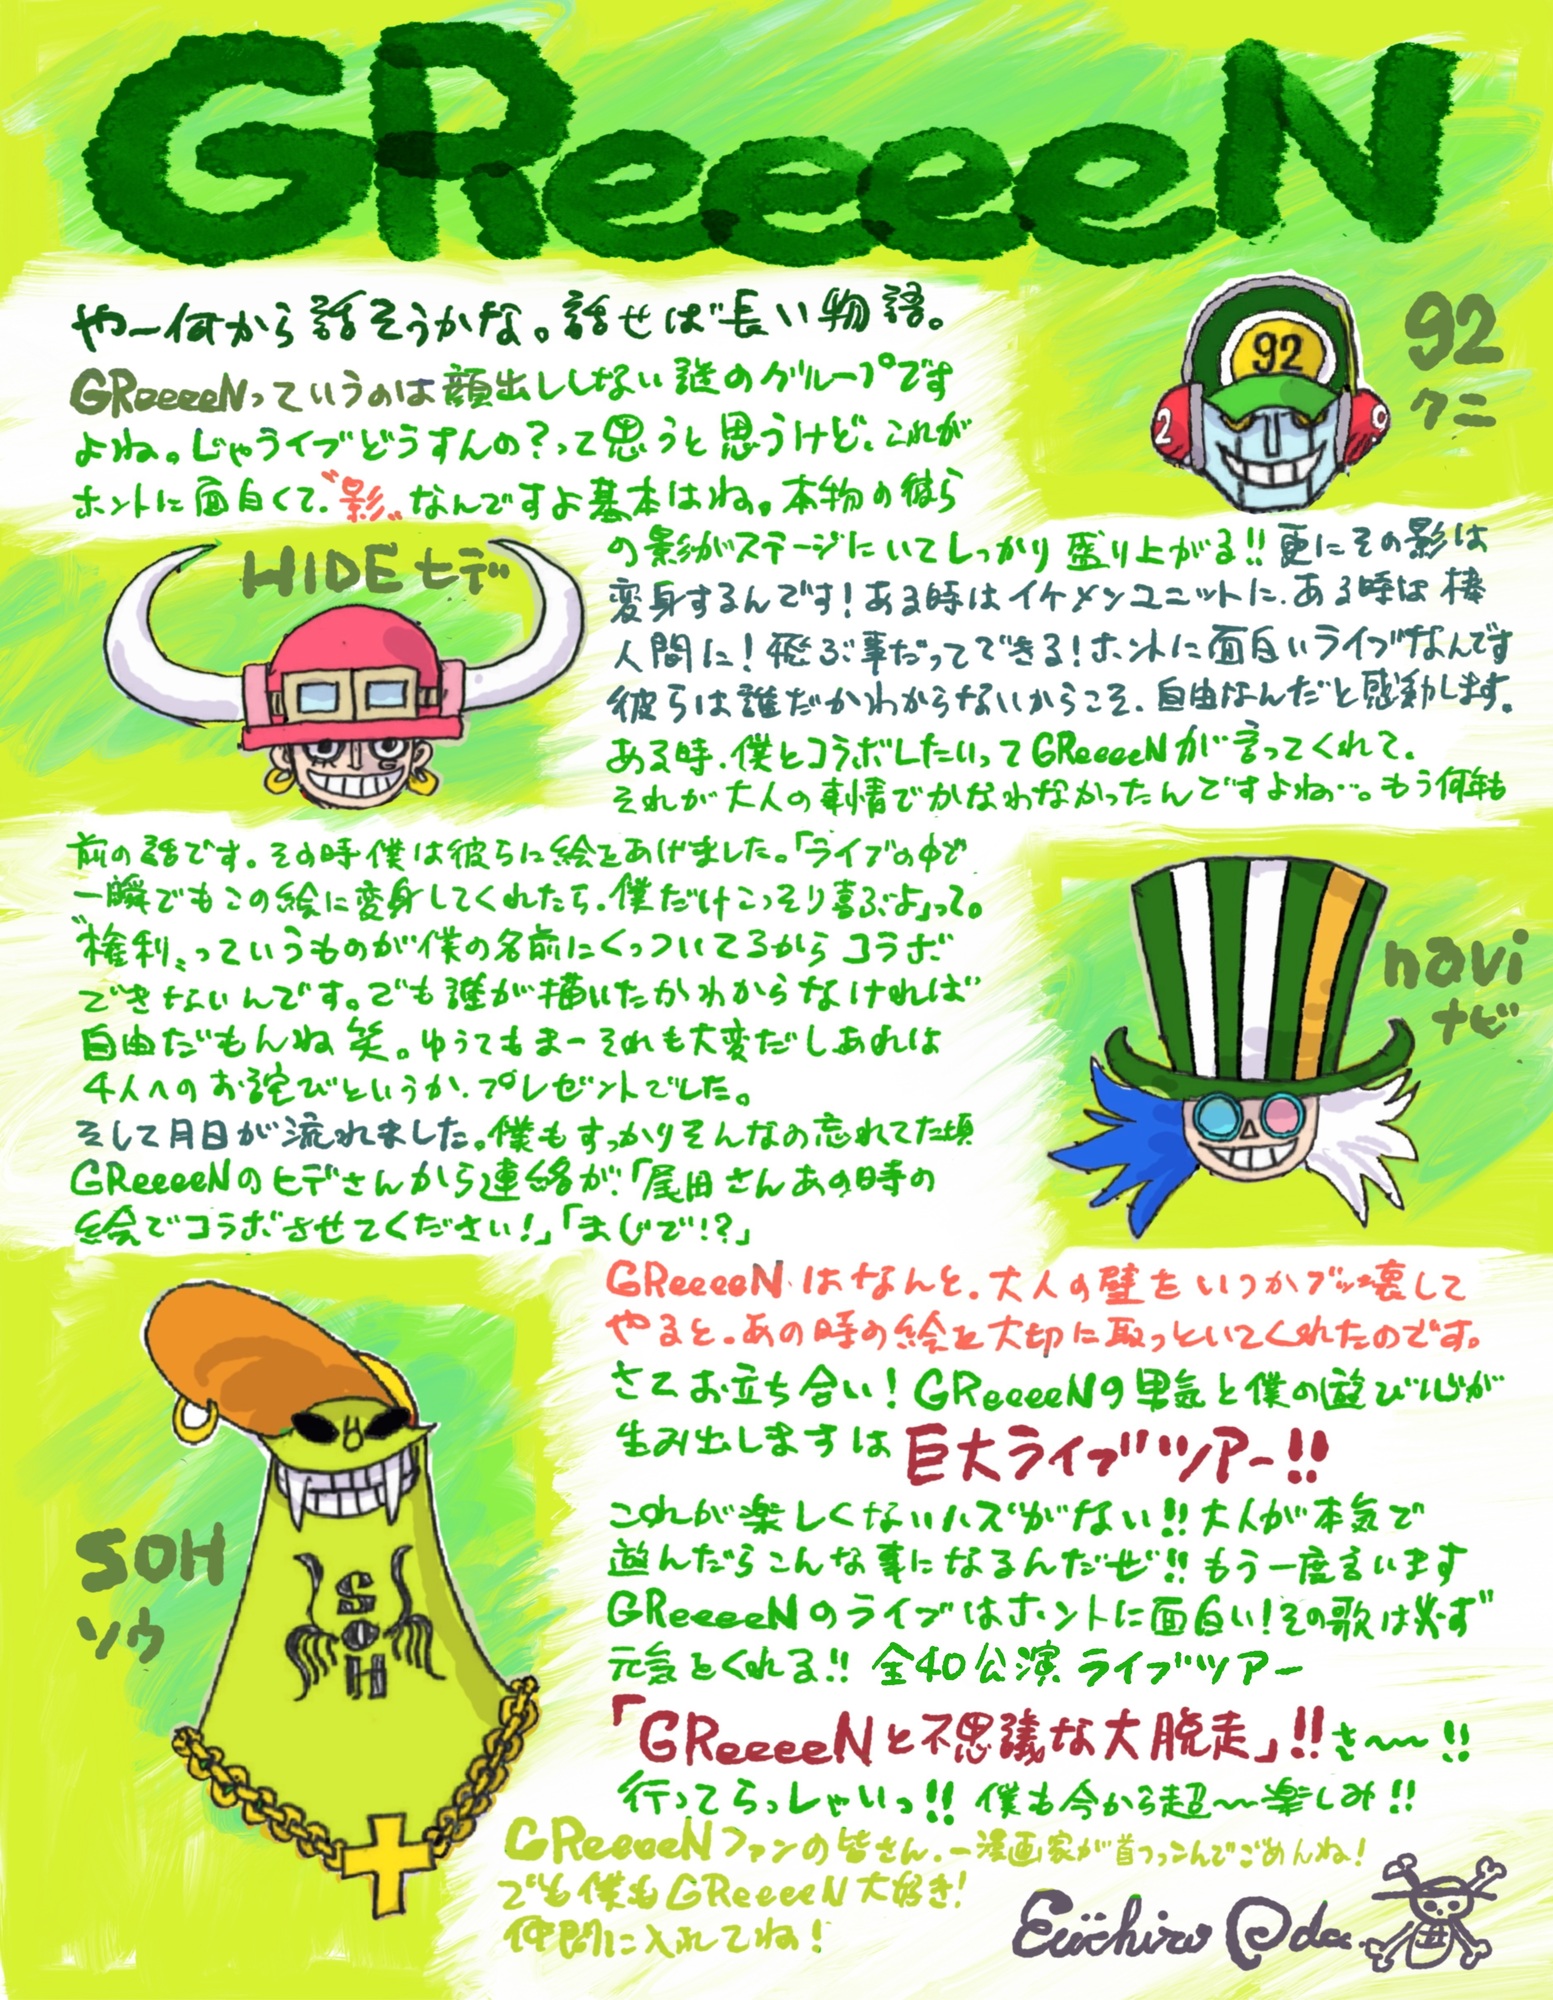 GReeeeN
やー何から話そうかな。話せば長い物語。
GReeeeNっていうのは顔出ししない謎のグループです
よね。じゃライブどうすんの?って思うと思うけど、これが
ホントに面白くて、〝影〟なんですよ基本はね。本物の彼ら
の影がステージにいてしっかり盛り上がる!!更にその影は
変身するんです!ある時はイケメンユニットに、ある時は棒
人間に!飛ぶ事だってできる!ホントに面白いライブなんです
彼らは誰だかわからないからこそ、自由なんだと感動します。
ある時、僕とコラボしたいってGReeeeNが言ってくれて、
それが大人の事情でかなわなかったんですよね…。もう何年も
前の話です。その時僕は彼らに絵をあげました。「ライブの中で
一瞬でもこの絵に変身してくれたら、僕だけこっそり喜ぶよ」って。
〝権利〟っていうものが僕の名前にくっついてるからコラボ
できないんです。でも誰が描いたかわからなければ
自由だもんね笑。ゆうてもまーそれも大変だしあれは
4人へのお詫びというか、プレゼントでした。
そして月日が流れました。僕もすっかりそんなの忘れてた頃
GReeeeNのヒデさんから連絡が、「尾田さんあの時の
絵でコラボさせてください!」「まじで!?」
GReeeeNはなんと、大人の壁をいつかブッ壊して
やると、あの時の絵を大切に取っといてくれたのです。
さてお立ち合い!GReeeeNの男気と僕の遊び心が
生み出しますは巨大ライブツアー!!
これが楽しくないハズがない!!大人が本気で
遊んだらこんな事になるんだぜ!!もう一度言います
GReeeeNのライブはホントに面白い!その歌は必ず
元気をくれる!!全40公演ライブツアー
「GReeeeNと不思議な大脱走」!!さ〜〜!!
行ってらっしゃいっ!!僕も今から超〜〜楽しみ!!
GReeeeNファンの皆さん、一漫画家が首つっこんでごめんね!
でも僕もGReeeeN大好き!
仲間に入れてね!
Eiichiro Oda.
92
クニ
92
2
9
HIDE ヒデ
navi
ナビ
SOH
ソウ
SOH